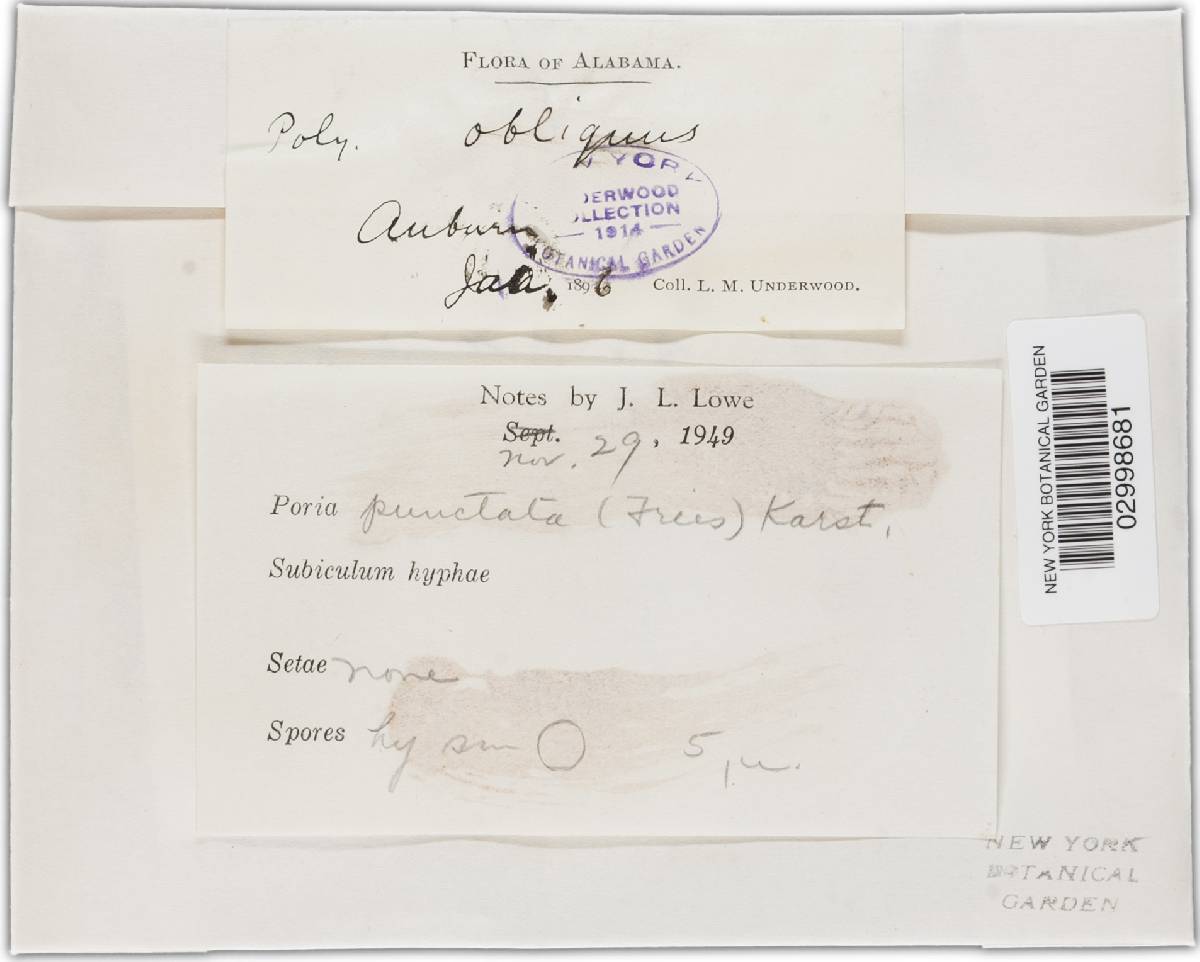 FLORA OF ALABAMA.
Poly. obliquus
YORK
DERWOOD
LLECTION
1914
BOTANICAL GARDEN
Auburn,
Jan. 1896 Coll. L. M. UNDERWOOD.
Notes by J. L. Lowe
Sept.
Nov. 29, 1949
Poria punctata (Fries) Karst.
Subiculum hyphae
Setae none
Spores hy sm 5 µ.
NEW YORK BOTANICAL GARDEN
02998681
NEW YORK
BOTANICAL
GARDEN